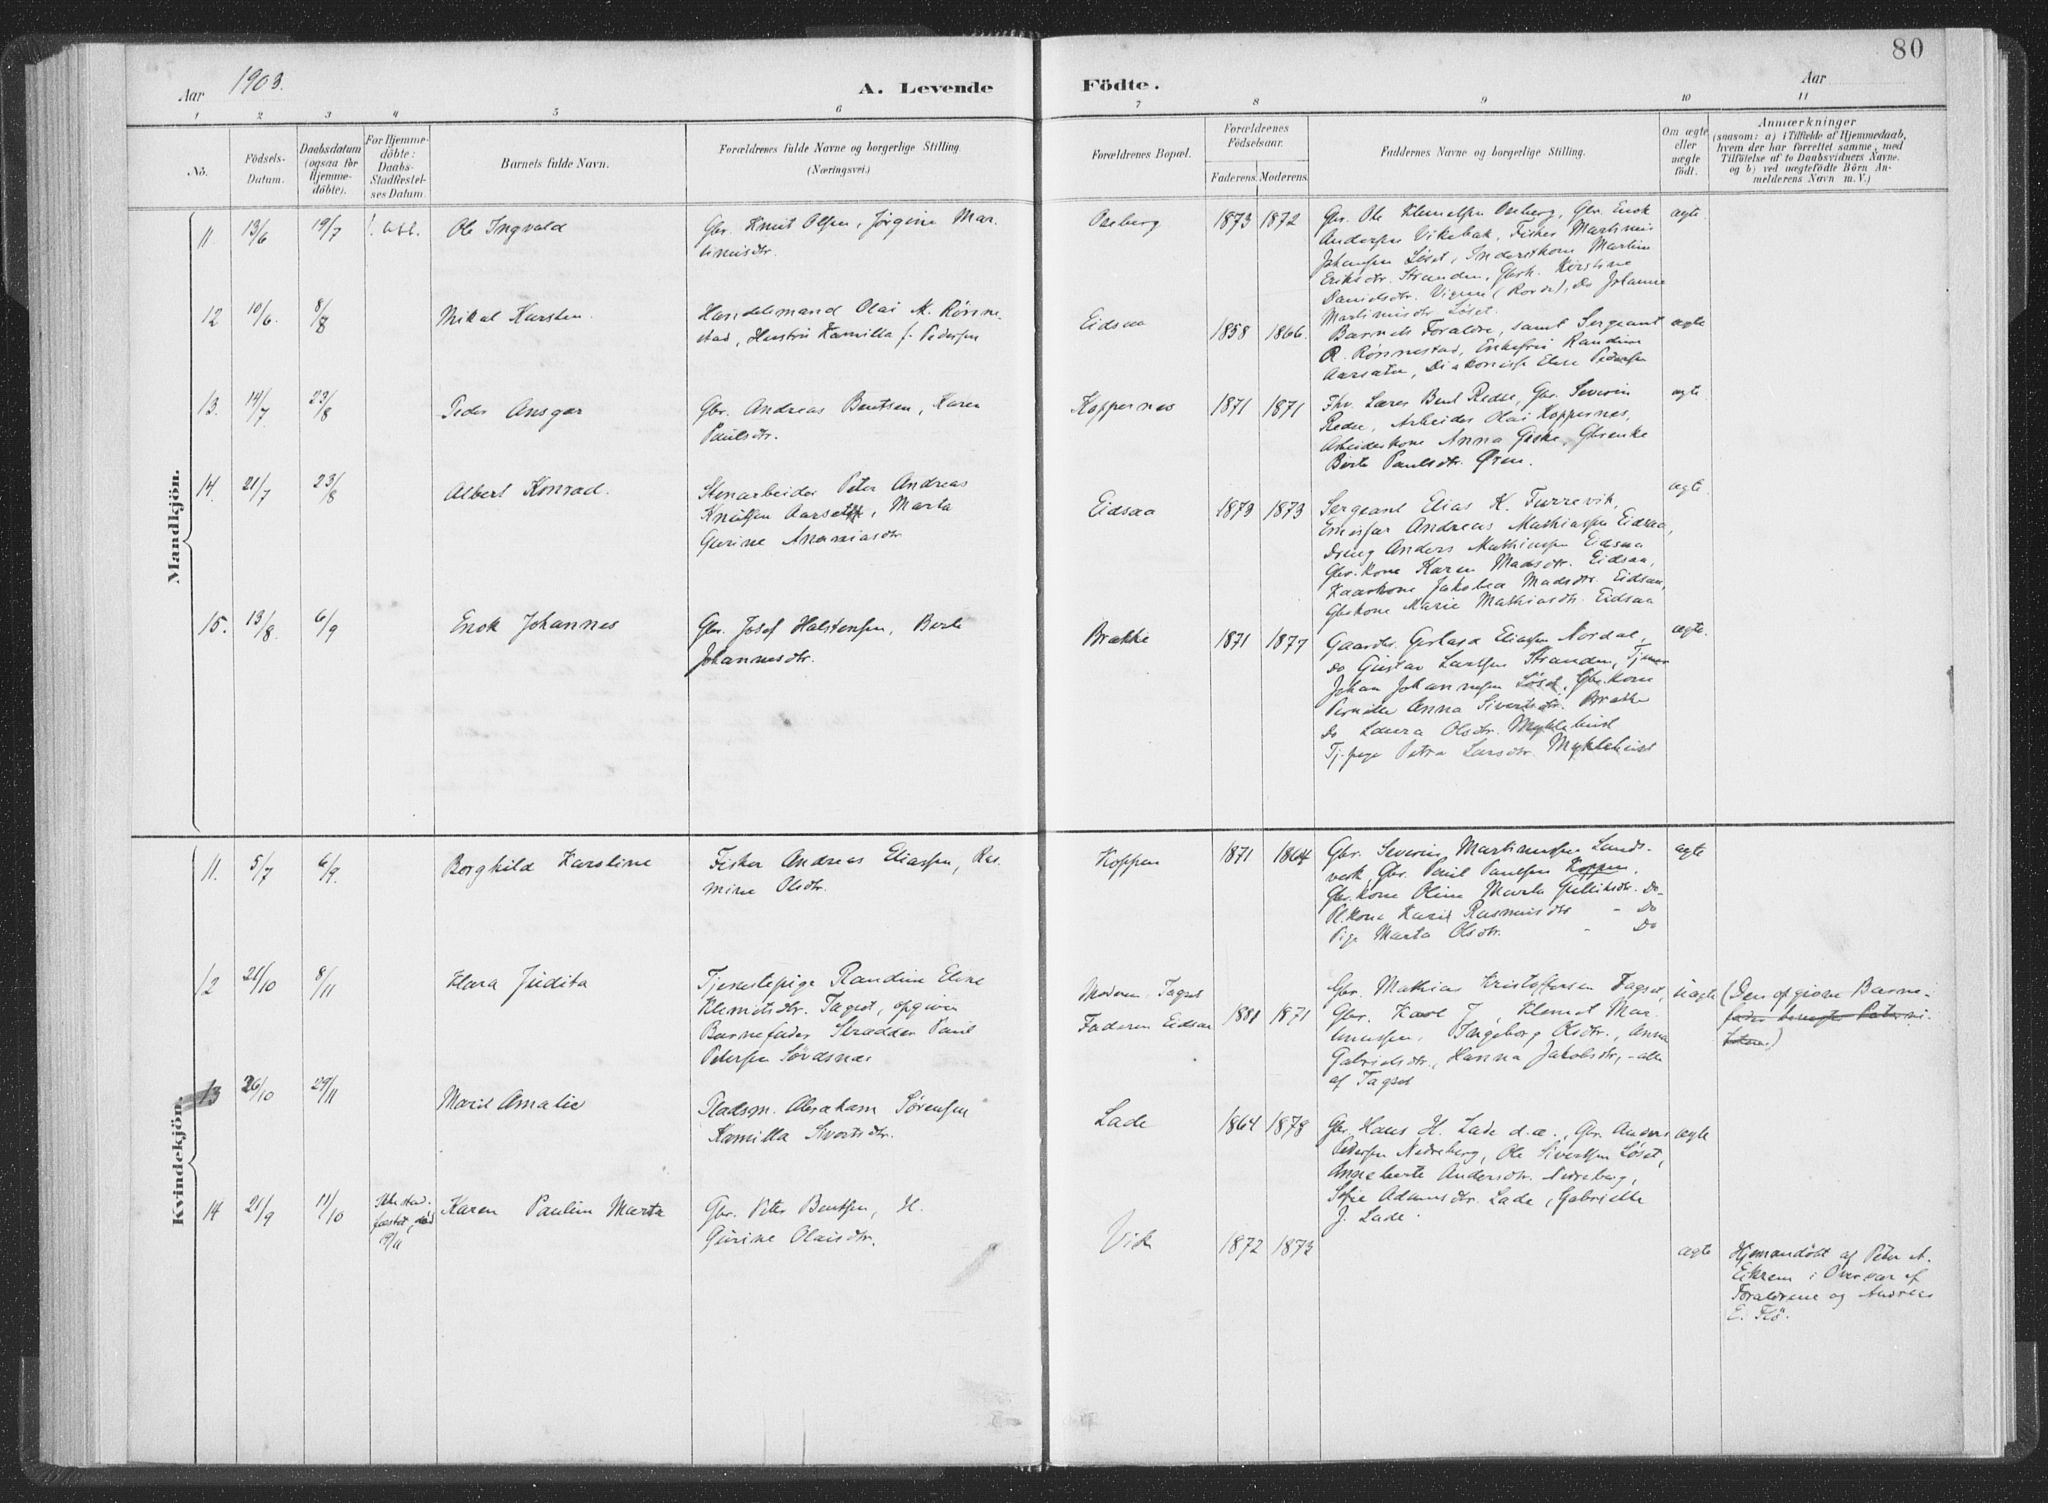 80
Aar 1903.
A. Levende
Födte.
Aar
1 2 3 4 5 6
7 8 9 10 11
No.
Födsels-
Datum.
Daabsdatum
(ogsaa for
Hjemme-
döbte).
For Hjemme-
döbte:
Daabs-
Stadfæstel-
ses Datum.
Barnets fulde Navn.
Forældrenes fulde Navne og borgerlige Stilling.
(Næringsvei.)
Forældrenes Bopæl.
Forældrenes
Födselsaar.
Faderens. Moderens.
Faddernes Navne og borgerlige Stilling.
Om ægte
eller
uægte
födt.
Anmærkninger
(saasom: a) i Tilfælde af Hjemmedaab,
hvem der har forrettet samme, med
Tilföielse af to Daabsvidners Navne.
og b) ved uægtefödte Börn An-
melderens Navn m. V.)
Mandkjön.
11. 13/6 19/7 Ole Ingvald
Gbr. Knut Olsen, Jørgine Mar-
tinusdtr.
Aasberg 1873 1872 ægte
Gbr. Ole Klemetsen Aasberg, Gbr. Enok
Andersen Vikebak, Fisker Martinus
Johansen Løset, Inderstkone Martine
Eriksdtr. Stranden, Gbrk. Kirstine
Danielsdtr. Vigene (Rovde), Do Johanne
Martinusdtr Løset.
12 10/6. 8/8 Mikal Karsten.
Handelsmand Olai M. Rønne-
stad, Hustru Kamilla f. Pedersen
Eidsaa 1858 1866. ægte
Barnets Forældre, samt Sergeant
R. Rønnestad, Enkefru Randine
Aarsæter, Diakonisse Elise Pedersen
13. 14/7 23/8 Peder Ansgar
Gbr. Andreas Bentsen, Karen
Paulsdtr.
Koppernes 1871 1871 ægte
Fhv. Lærer Bent Redse, Gbr. Severin
Redse, Arbeider Olai Koppernes,
Arbeiderkone Anna Giske, Gbrenke
Berte Paulsdtr. Øren.
14. 21/7 23/8 Albert Konrad.
Stenarbeider Peter Andreas
Knutsen Aarset, Marta
Gurine Ananiasdtr
Eidsaa 1873 1873 ægte.
Sergeant Elias K. Furrevik,
Emissær Andreas Mathiassen Eidsaa,
Dreng Anders Mathiassen Eidsaa
Gbr.kone Karen Madsdtr. Eidsaa,
Kaarkone Jakobea Madsdtr. Eidsaa,
Gbrkone Marie Mathiasdtr. Eidsaa
15. 13/8 6/9 Enok Johannes
Gbr. Josef Halstensen, Berte
Johannesdtr.
Brække 1871 1877 ægte.
Gaardbr. Gerhard Eliassen Nordal,
Do Gustav Larssen Stranden, Tjener
Johan Johannessen Løset, Gbr.kone
Pernille Anna Sivertsdtr. Brække
Do Laura Olsdtr. Myklebust
Tj.pige Petra Larsdtr. Myklebust
Kvindekjön.
11. 5/7 6/9. Borghild Karoline
Fisker Andreas Eliassen, Ras-
mine Olsdtr.
Koppen 1871 1864 ægte
Gbr. Severin Martinussen Lands-
verk, Gbr. Paul Paulsen Koppen,
Gbr.kone Oline Marta Gulliksdtr. Do
Pl.kone Karen Rasmusdtr - Do
Pige Marta Olsdtr. - Do
12 21/10 8/11 Klara Judita
Tjenestepige Randine Eline
Klemetsdtr. Tagset, opgiven
Barnefader Skrædder Paul
Petersen Sørdsnes
Moderen Tagset
Faderen Eidsaa 1881 1871 uægte
Gbr. Mathias Kristoffersen Tagset,
Gbr. Karl J , Klemet Mar-
tinussen, Ingeborg Olsdtr., Anna
Gabrielsdtr., Hanna Jakobsdtr, - alle
af Tagset
(Den opgivne Barne-
fader benegter Paterni-
teten.)
13 26/10 29/11 Marit Amalie
Pladsm. Abraham Sørensen
Kamilla Sivertsdtr.
Lade 1864 1878 ægte
Gbr. Hans H. Lade d.æ., Gbr. Anders
Pedersen Nedreberg, Ole Sivertsen Løset,
Anneberte Andersdtr. Nedreberg,
Sofie Adamsdtr. Lade, Gabrielle
J. Lade.
14 21/9 11/10 Ikke stad-
fæstet, død
19/11
Karen Pauline Marta
Gbr. Peter Bentsen, H.
Gurine Olaisdtr.
Vik 1872 1873 ægte
Hjemmedöbt af Peter A.
Eikrem i Overvær af
Forældrene og Andreas
E. Flö.